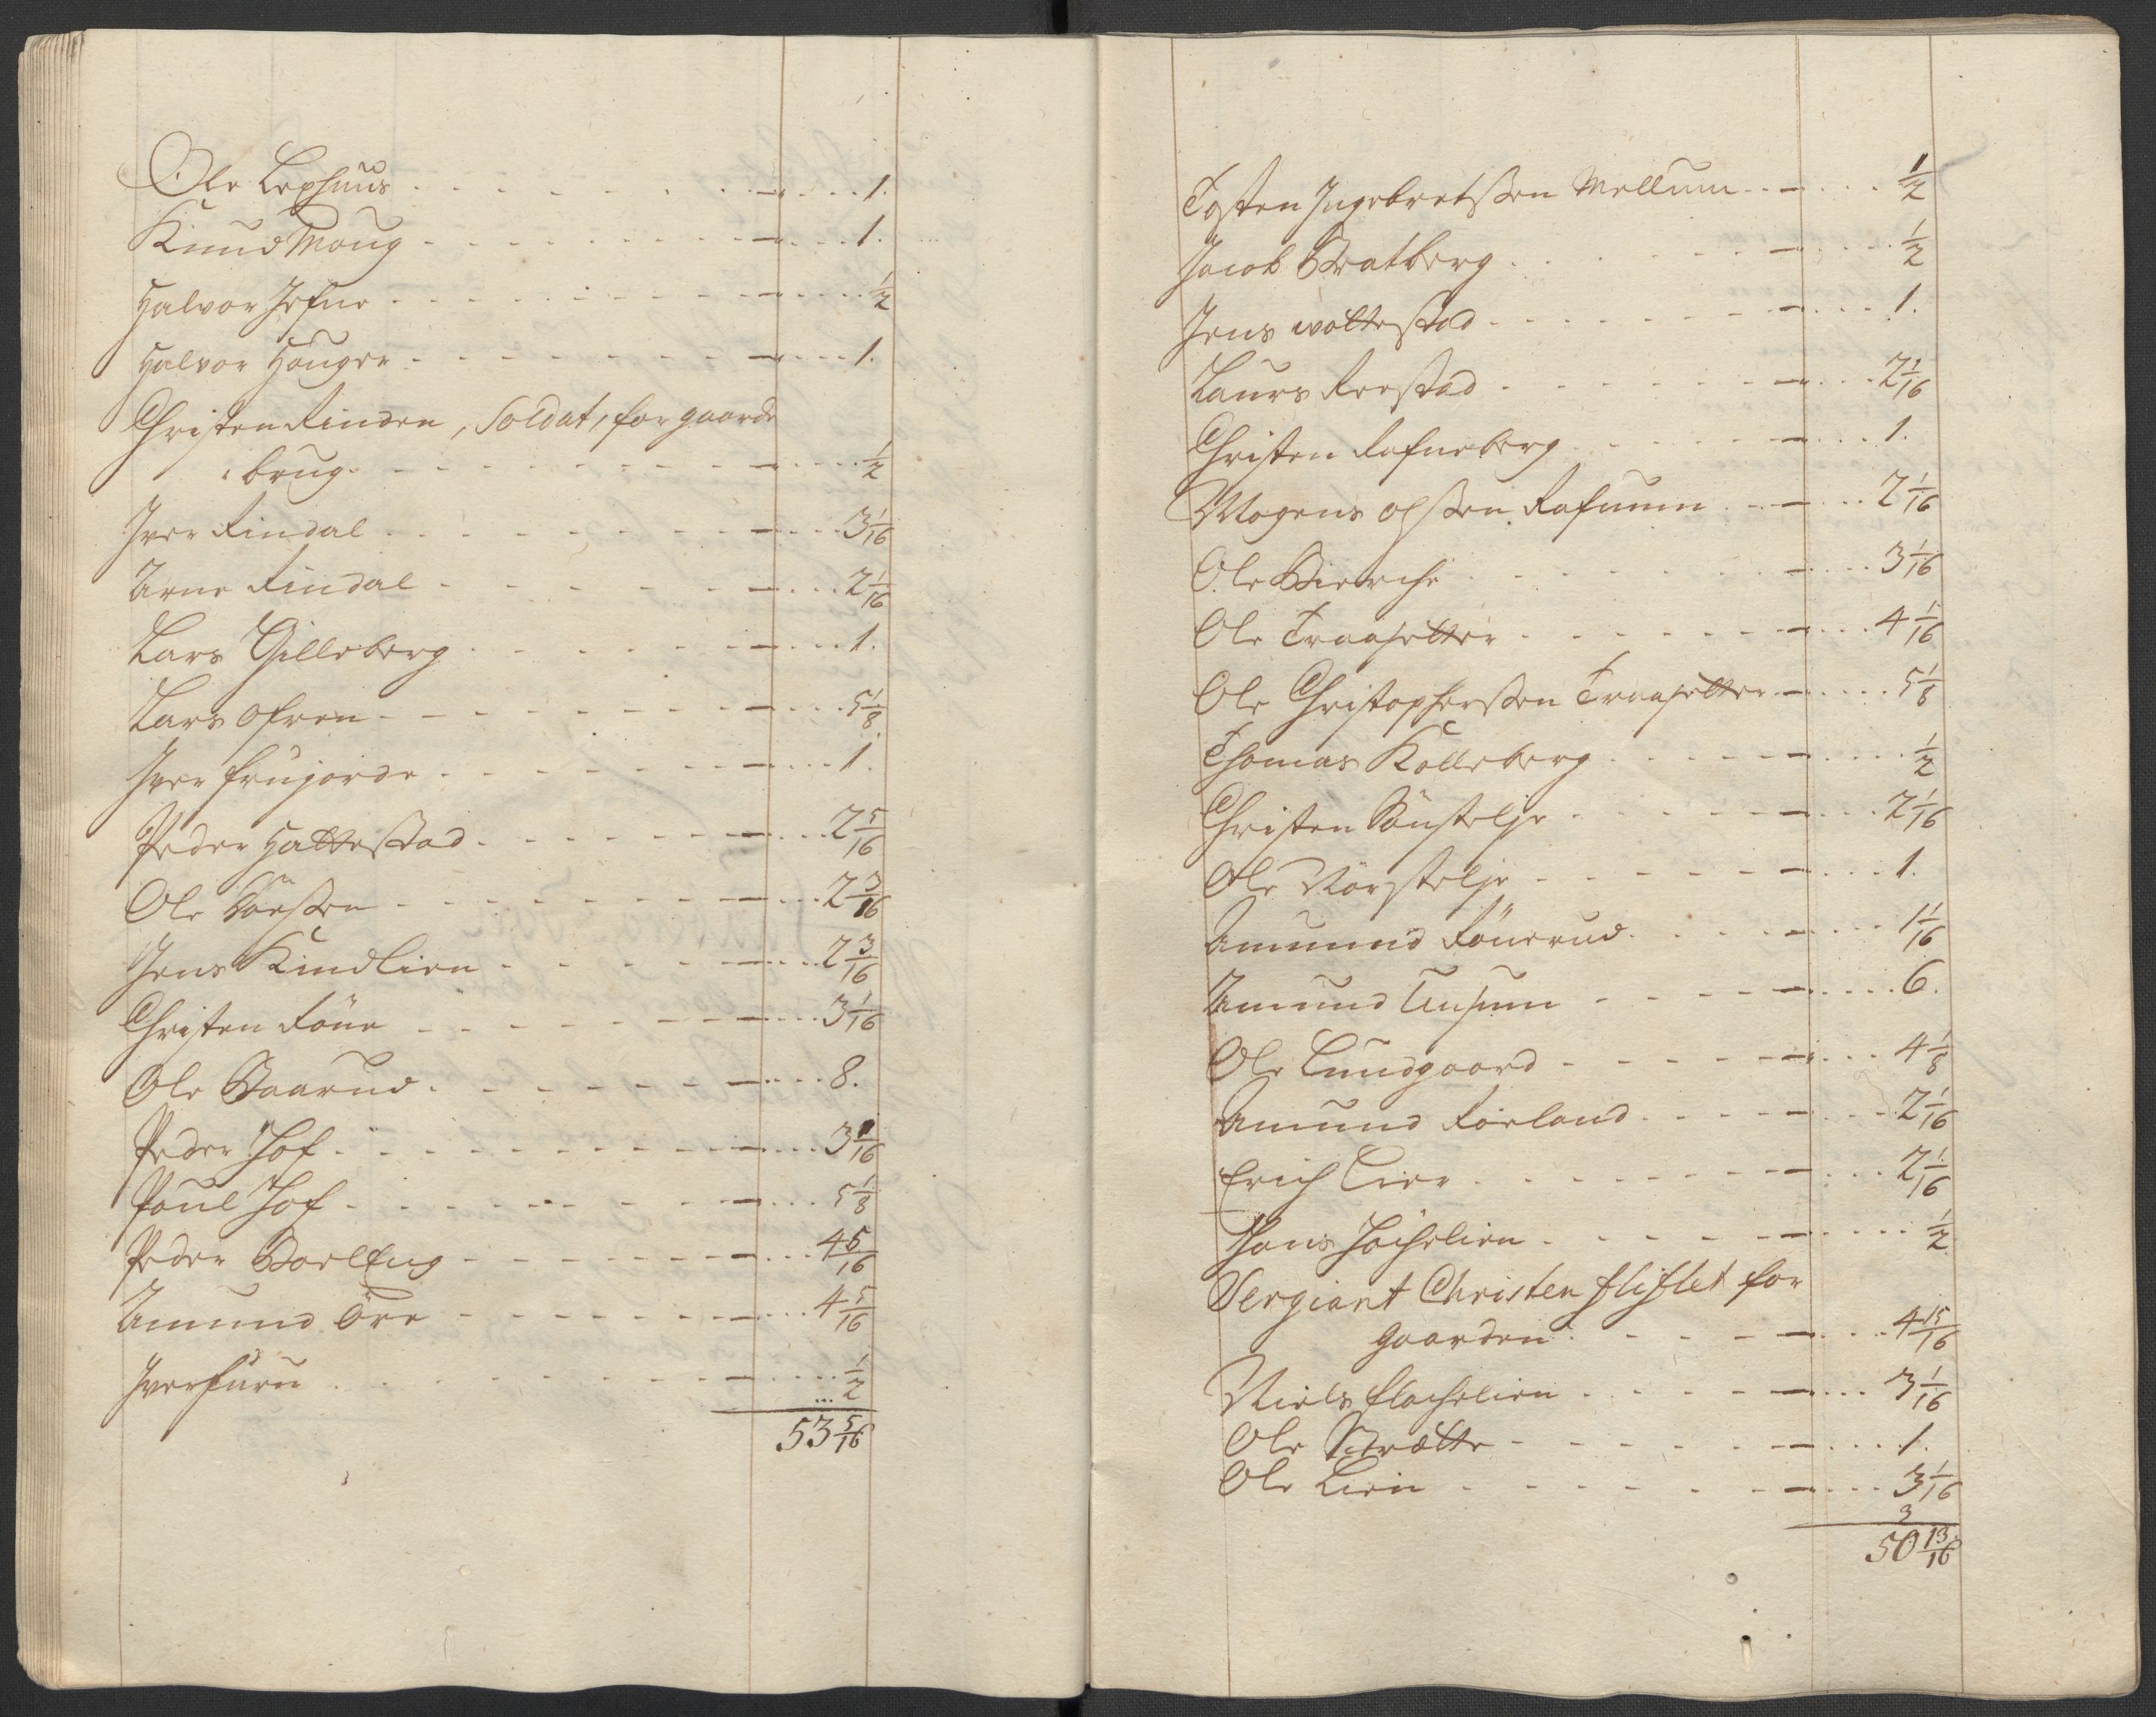 Ole Lephuus - 1.
Knud Moug - 1.
Halvor Jefne - 1/2
Halvor Houger - 1.
Christen Rinden, Soldat, for gaards
brug - 1/2
Iver Rindal - 3 1/16
Arne Rindal - 2 1/16
Lars Gilleberg - 1.
Lars Ofren - 5 1/8
Iver Frugorde - 1.
Peder Hattestad - 2 5/16
Ole - 2 3/16
Jens Kindlien - 2 3/16
Christen Röne - 3 1/16
Ole Baarud - 8.
Peder Hof - 3 1/16
Poul Hof - 5 1/8
Peder Bolleng - 4 5/16
Amund Öre - 4 5/16
Iver Furu - 1/2
53 5/16
Tosten Ingebretssen Mellum - 1/2
Jacob Bratberg - 1/2
Jens Woltestad - 1.
Laurs Reestad - 2 1/16
Christen Rafneberg - 1.
Mogens Olssen Rafnum - 2 1/16
Ole Bierche - 3 1/16
Ole Traasetter - 4 1/16
Ole Christopherssen Traasetter - 5 1/8
Thomas Kolleberg - 1/2
Christen Sönstelje - 2 1/16
Ole Nörstelje - 1.
Amund Rönerud - 1 1/16
Amund Aasum - 6.
Ole Lundgaard - 4 1/8
Amund Rörland - 2 1/16
Erich Lier - 2 1/16
Hans Höchelien - 1/2
Sergiant Christen Fliflet for
Gaarden - 4 15/16
Niels Flachelien - 3 1/16
Ole Brætte - 1.
Ole Lien - 3 1/16
3
50 13/16